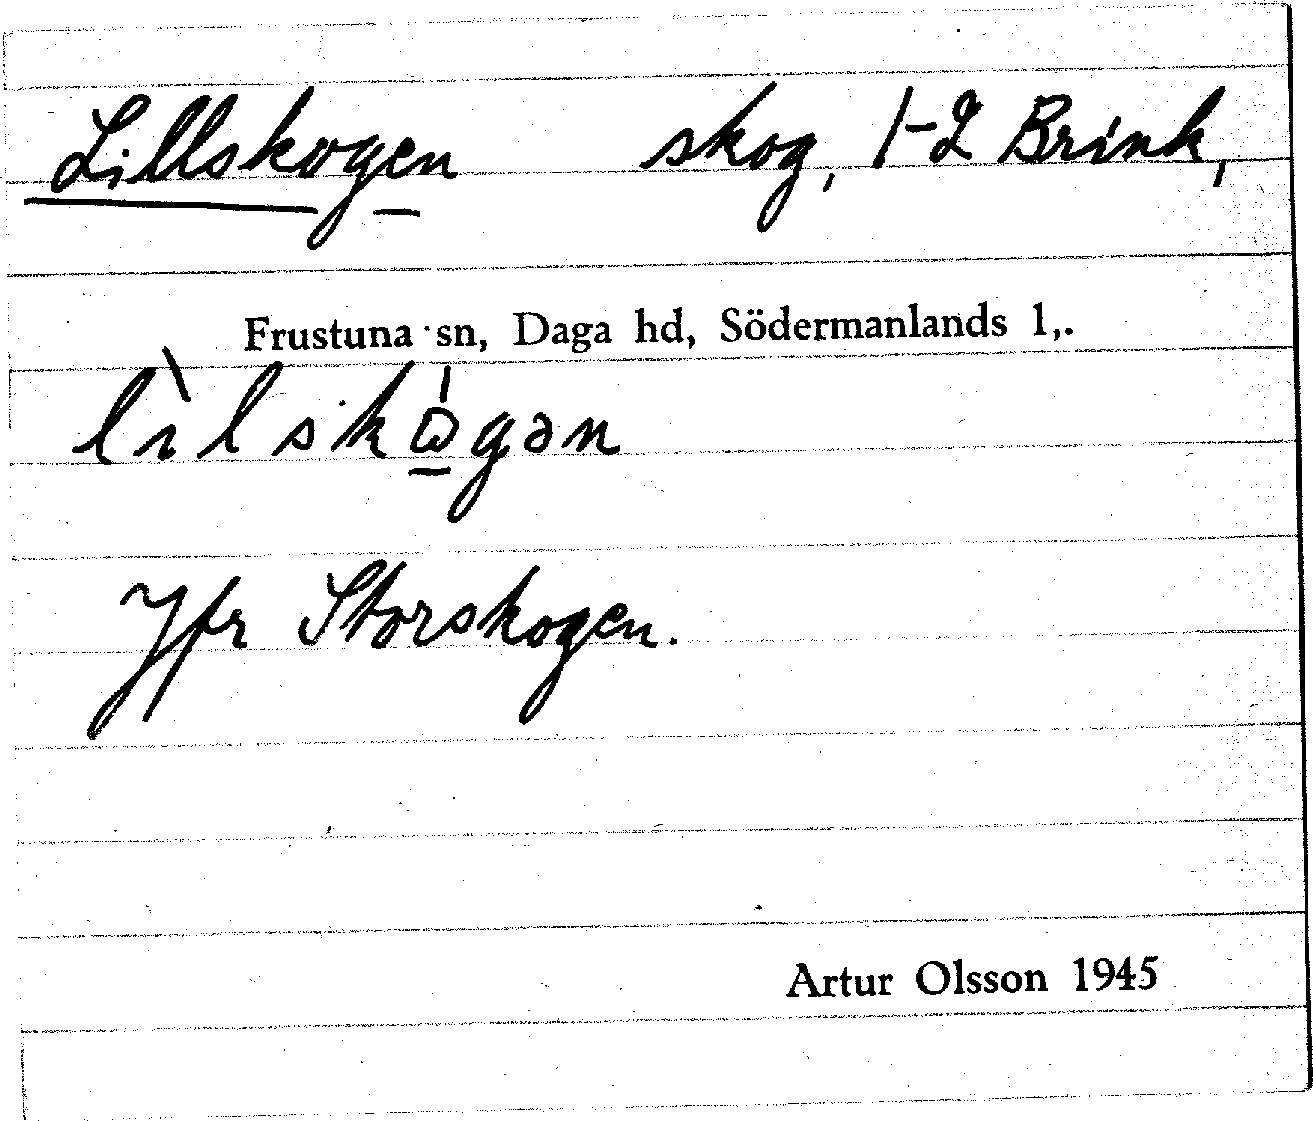 Lillskogen skog, 1-2 Brink,
Frustuna sn, Daga hd, Södermanlands l,.
Jfr Storskogen.
Artur Olsson 1945